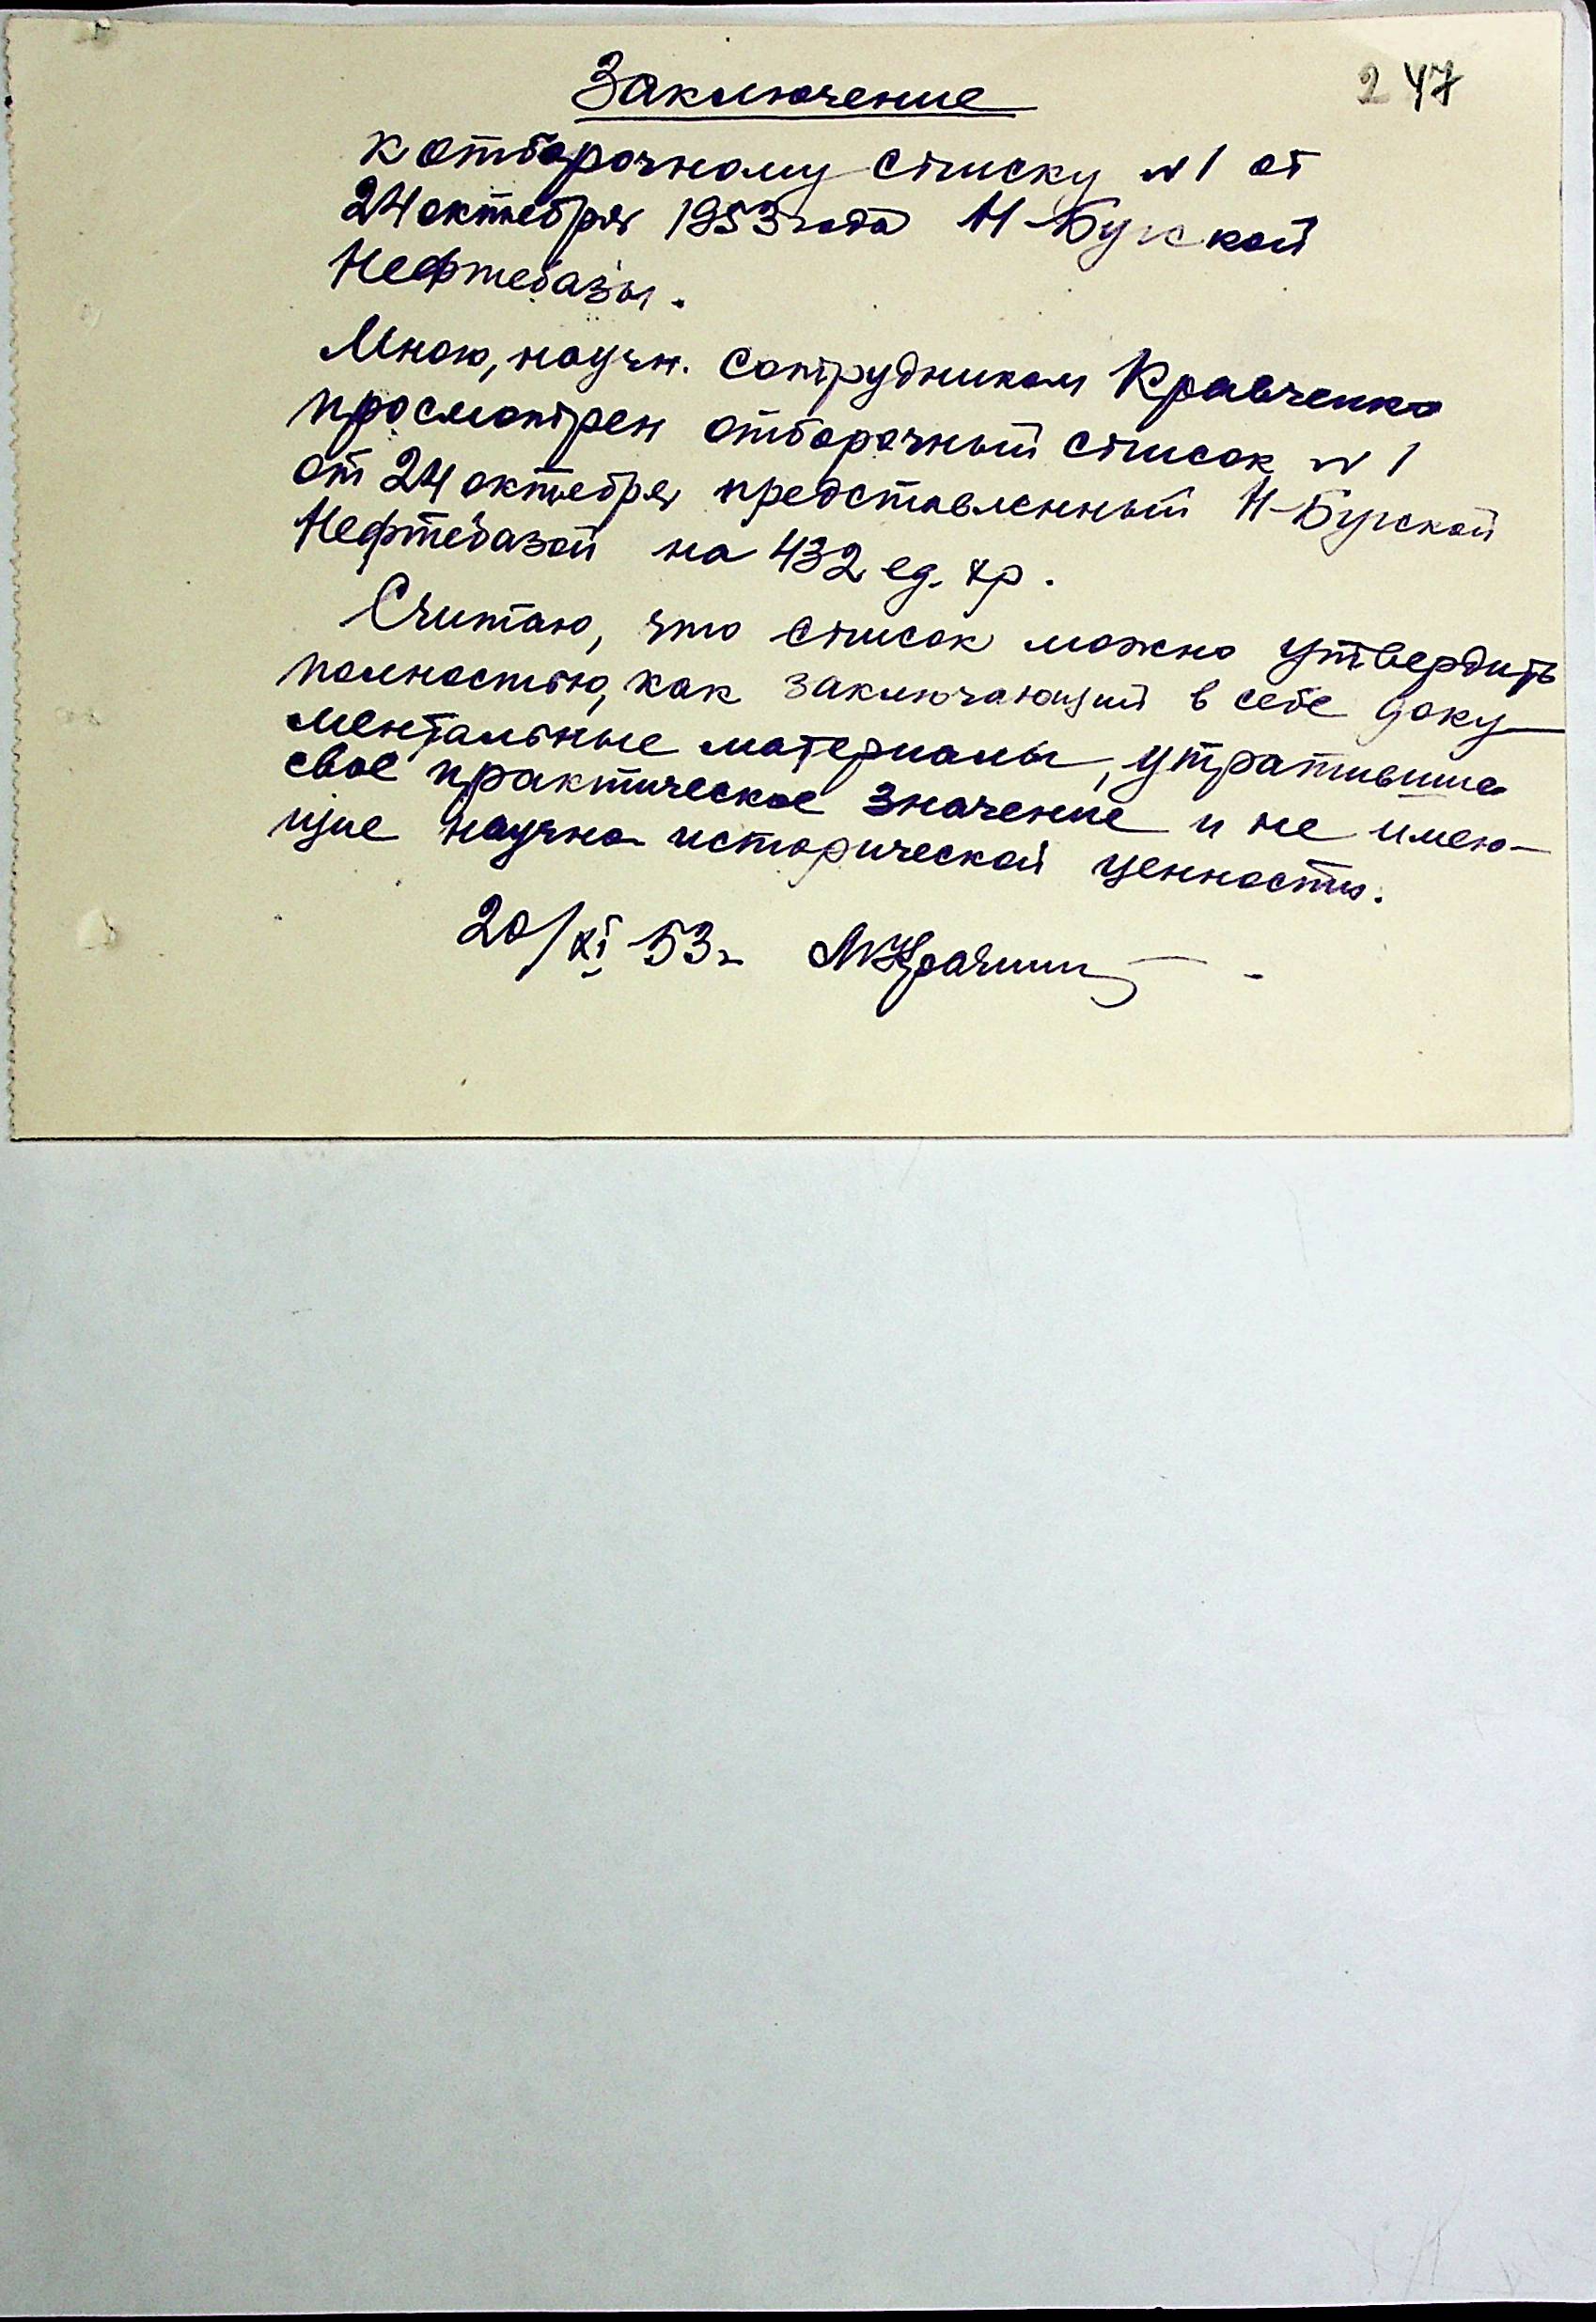 247
Заключение
к отборочному списку №1 от
24 октября 1953 года Н-Бугской
Нефтебазы.
Мною, научн. сотрудником Кравченко
просмотрен отборочный список №1
от 24 октября представленный Н-Бугской
Нефтебазой на 432 ед. хр.
Считаю, что список можно утвердить
полностью, как заключающий в себе доку-
ментальные материалы, утратившие
свое практическое значение и не имею-
щие научно-исторической ценности.
20/XI 53г